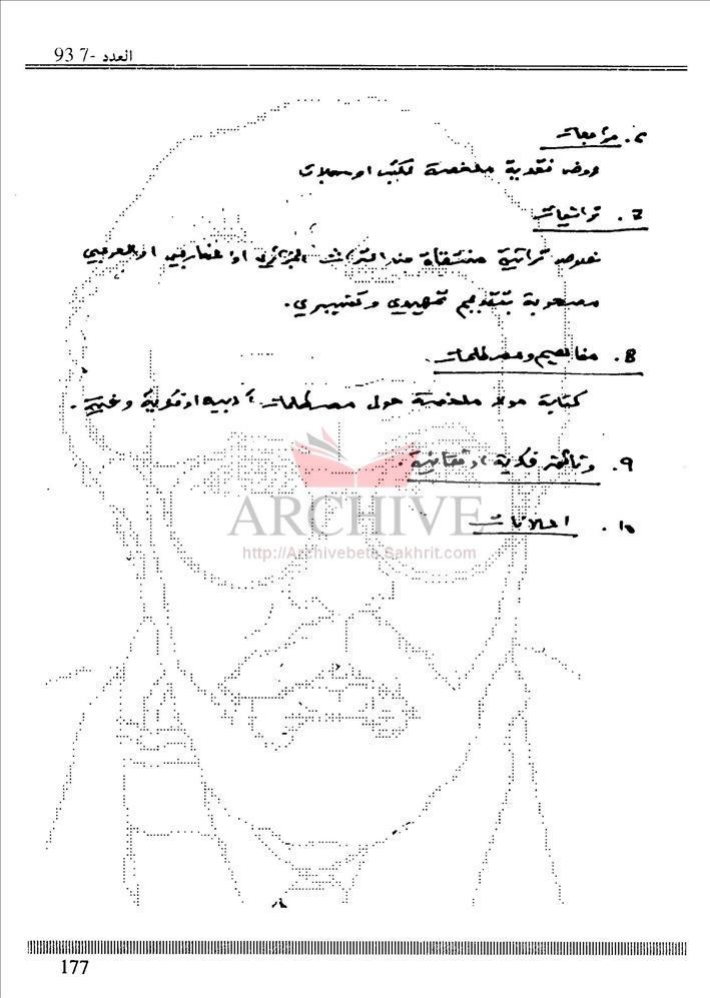 العدد -7 93
6. مراجعات
عروض نقدية ملخصة لكتب او مجلات
7. تراثيات
نصوص تراثية منتقاة من التراث الجزائري او المغاربي او العربي
مصحوبة بتقديم تمهيدي وتفسيري.
8. مفاهيم ومصطلحات.
كتابة مواد ملخصة حول مصطلحات أدبية او فكرية وفنية.
9. وثائق فكرية او ثقافية.
10. اعلانات
ARCHIVE
http://Archivebeta.Sakhrit.com
177